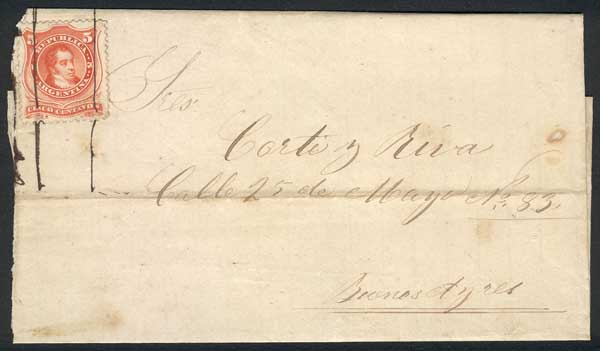 5 5
REPUBLICA
ARGENTINA
CINCO CENTAVOS
Sres
Corti y Riva
Calle 25 de Mayo No. 83.
Buenos Ayres